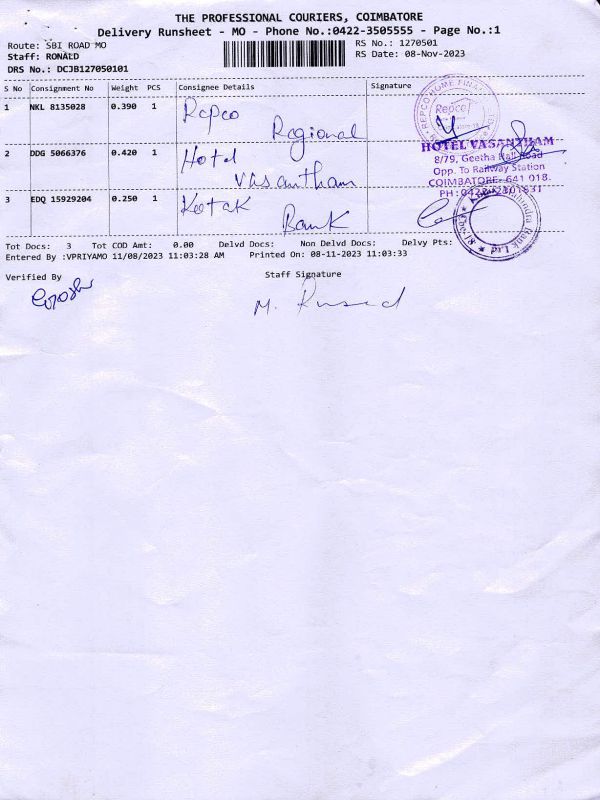 THE PROFESSIONAL COURIERS, COIMBATORE
Delivery Runsheet - MO - Phone No.:0422-3505555 - Page No.:1
Route: SBI ROAD MO RS No.: 1270501
Staff: RONALD RS Date: 08-Nov-2023
DRS No.: DCJB127050101
S No Consignment No Weight PCS Consignee Details Signature
1 NKL 8135028 0.390 1 Repco
Regional
REPCO HOME FINANCE
Repco
2 DDG 5066376 0.420 1 Hotel
Vasantham
HOTEL VASANTHAM
8/79, Geetha Hall Road
Opp. To Railway Station
COIMBATORE- 641 018.
PH: 0422-2301631
3 EDQ 15929204 0.250 1 Kotak
Bank
Mahindra Bank Ltd
Tot Docs: 3 Tot COD Amt: 0.00 Delvd Docs: Non Delvd Docs: Delvy Pts:
Entered By :VPRIYAMO 11/08/2023 11:03:28 AM Printed On: 08-11-2023 11:03:33
Verified By Staff Signature